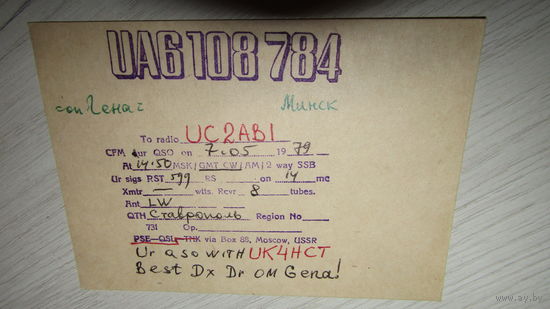 UA6 108 784
=оп Гена=
Минск
To radio UC2ABI
CFM ur QSO on 7.05 1979
At 14.50 MSK/GMT CW/AM/2 way SSB
Ur sigs RST 599 RS on 14 mc
Xmtr — wtts. Rcvr 8 tubes.
Ant LW
QTH Ставрополь Region No
731 Op.
PSE QSL TNK via Box 88, Moscow, USSR
Ur qso with UK4HCT
Best Dx Dr OM Gena!
www.ay.by